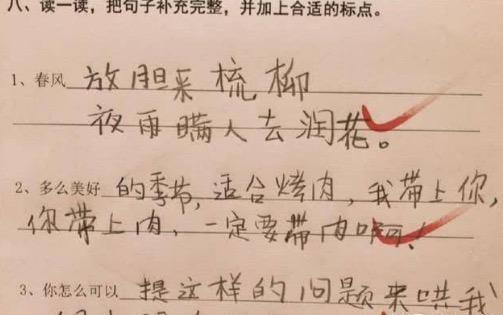 八、读一读，把句子补充完整，并加上合适的标点。
1、春风 放胆来梳柳
夜雨瞒人去润花。
2、多么美好 的季节，适合烤肉，我带上你，
你带上肉，一定要带肉呵！
3、你怎么可以 提这样的问题来哄我